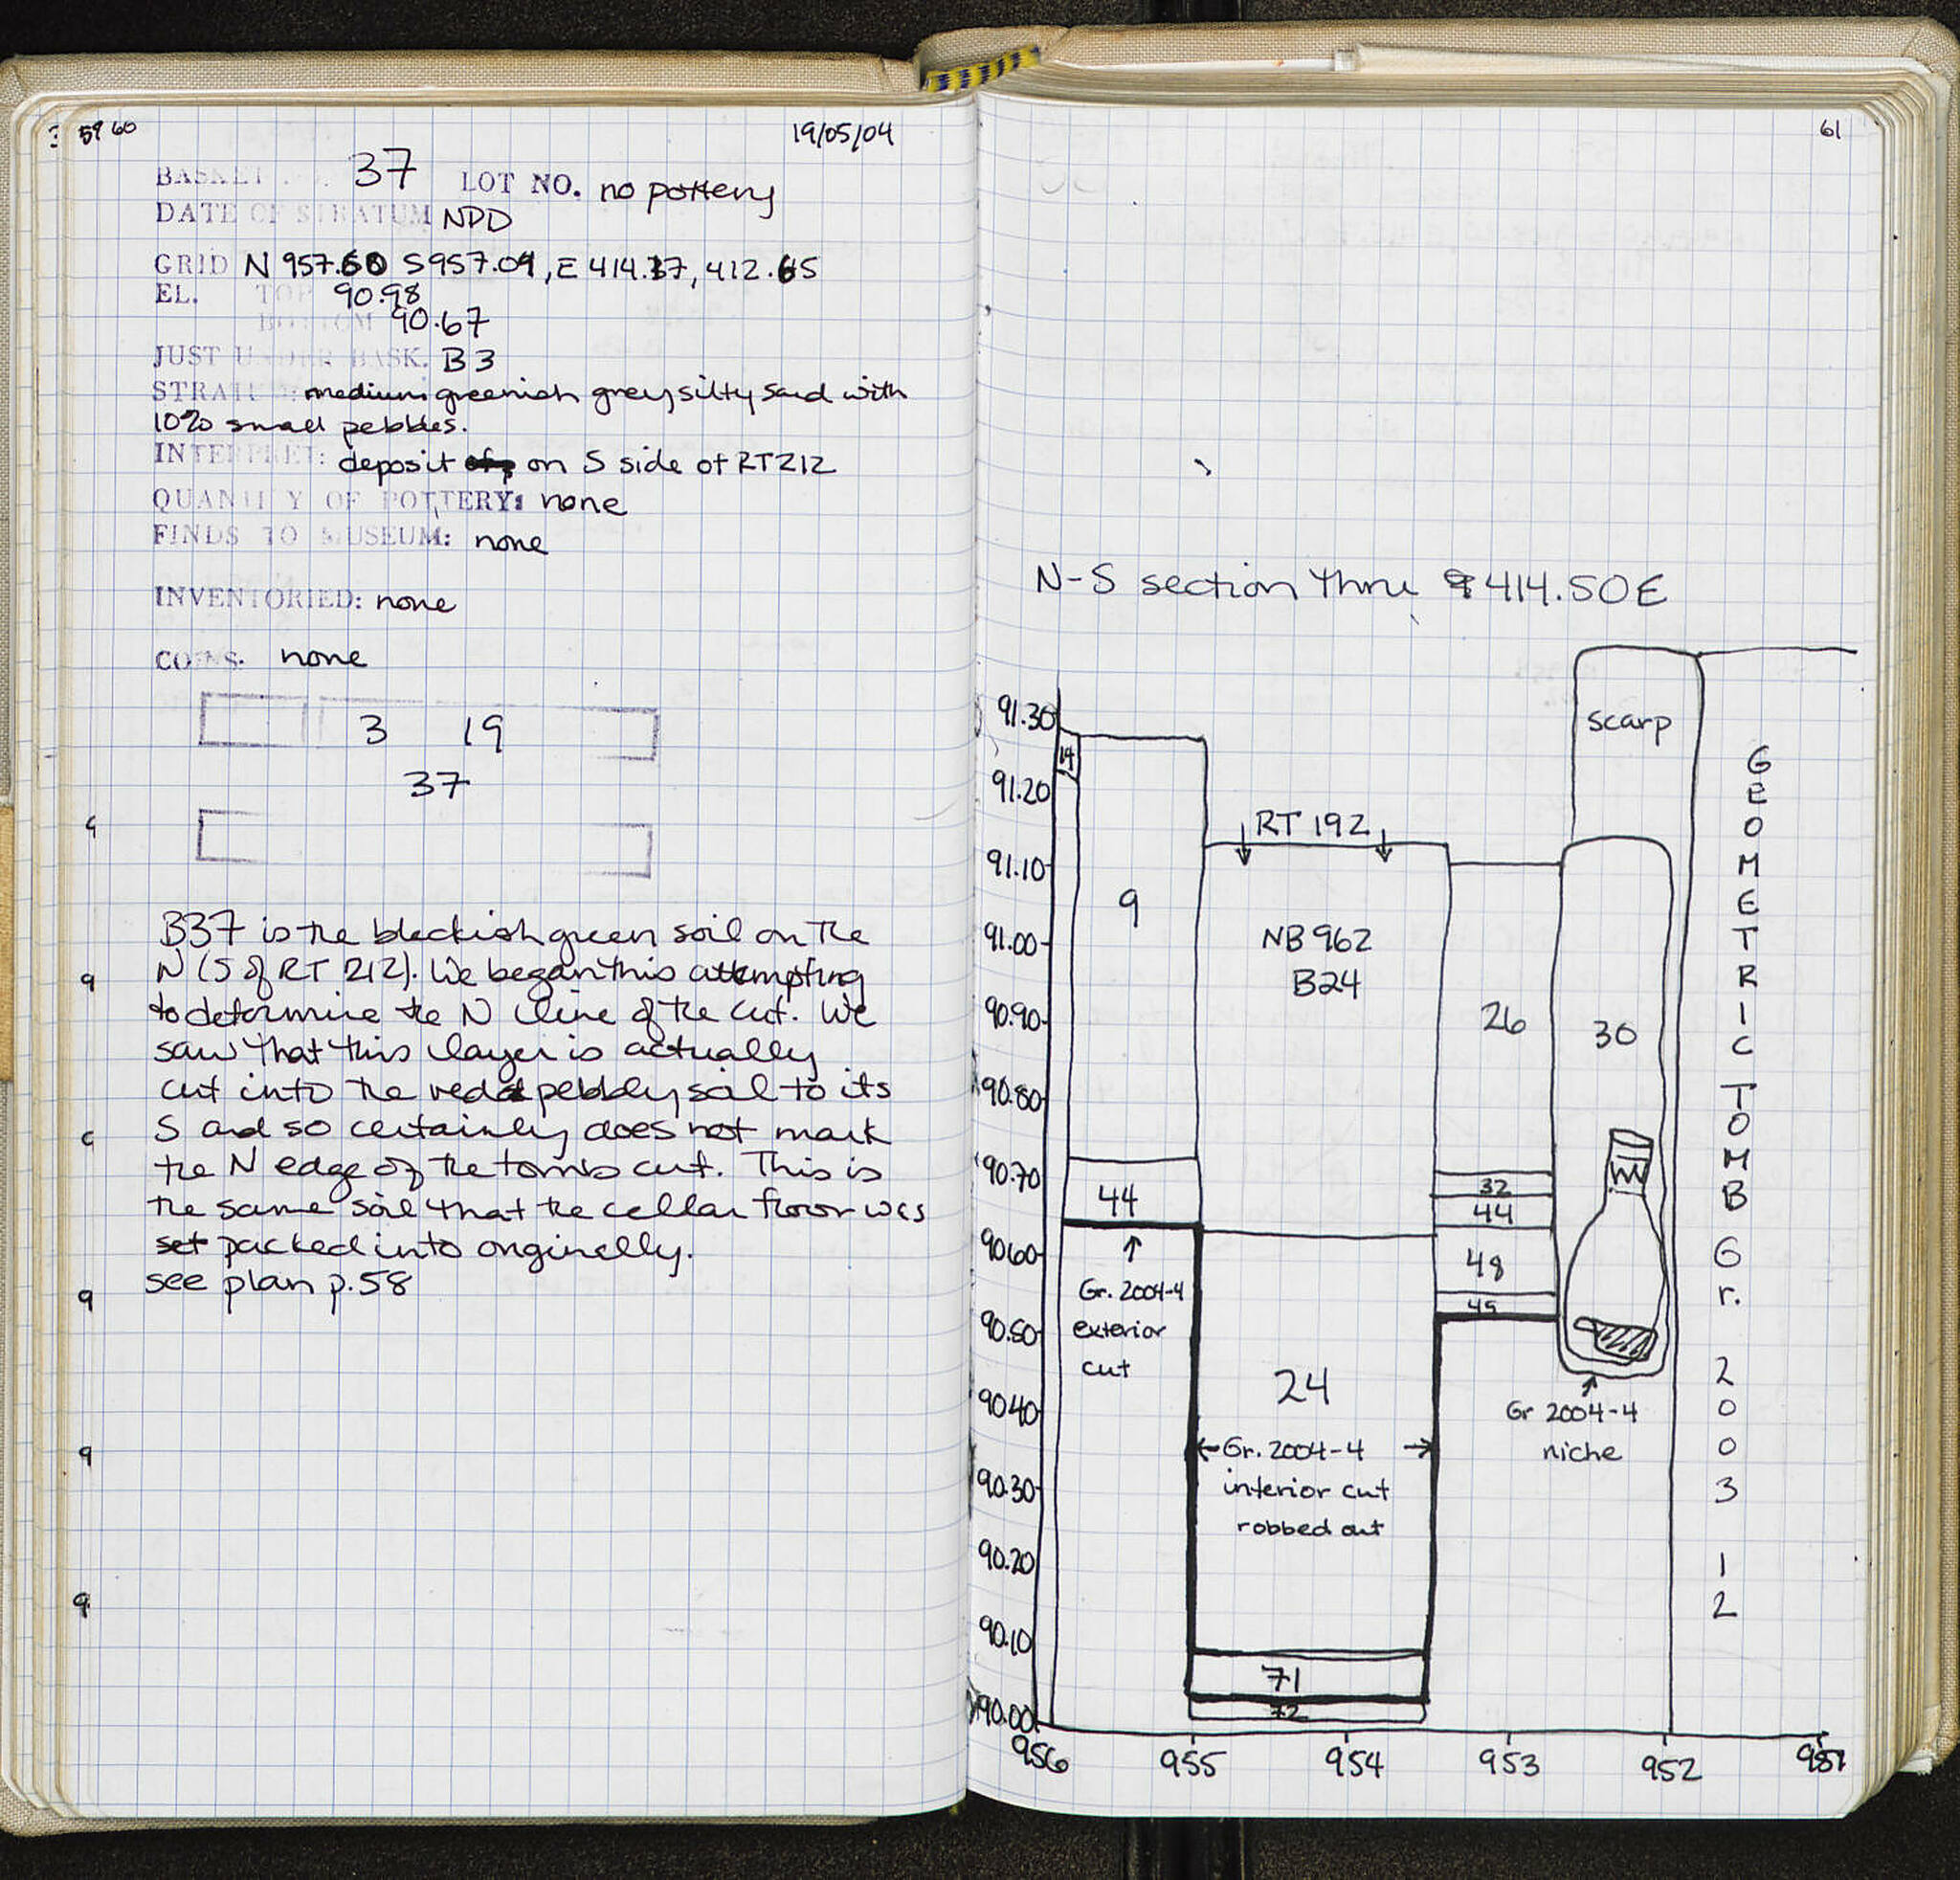 59 60
19/05/04
BASKET NO. 37 LOT NO. no pottery
DATE OF STRATUM NPD
GRID N 957.60 S957.09, E 414.37, 412.65
EL. TOP 90.98
BOTTOM 90.67
JUST UNDER BASK. B3
STRATUM: medium greenish grey silty sand with
10% small pebbles.
INTERPRET: deposit on S side of RT212
QUANTITY OF POTTERY: none
FINDS TO MUSEUM: none
INVENTORIED: none
COINS: none
3 19
37
B37 is the blackish green soil on the
N (S of RT 212). We began this attempting
to determine the N line of the cut. We
saw that this layer is actually
cut into the red pebbly soil to its
S and so certainly does not mark
the N edge of the tombs cut. This is
the same soil that the cellar floor was
set packed into originally.
see plan p.58
61
N-S section thru 414.50E
scarp
91.30
14
91.20
RT 192
91.10
9
91.00
NB 962
B24
90.90
26
30
90.80
90.70
32
44
44
90.60
48
Gr. 2004-4
exterior
cut
49
90.50
24
90.40
Gr 2004-4
niche
Gr. 2004-4
interior cut
robbed out
90.30
90.20
90.10
71
72
90.00
956 955 954 953 952 951
GEOMETRIC TOMB Gr. 2003 12